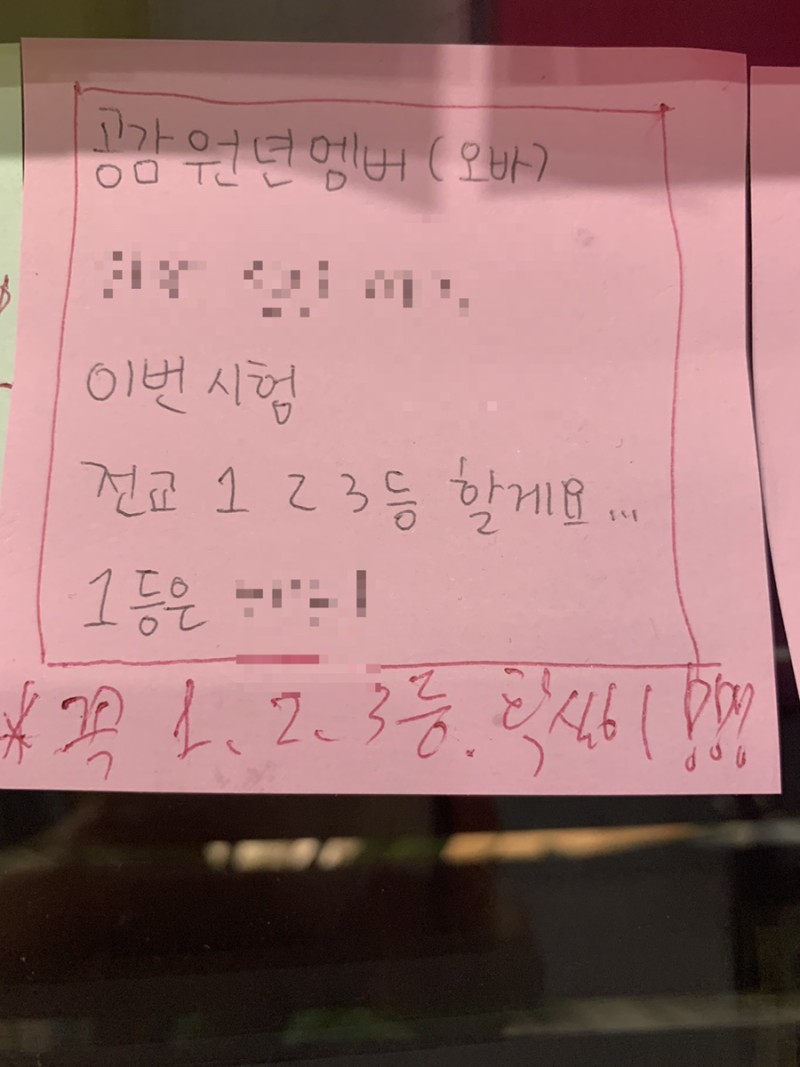 공감 원년멤버 (오바)
이번 시험
전교 1 2 3등 할게요...
1등은
* 꼭 1、2、3등. 확실히 !!!